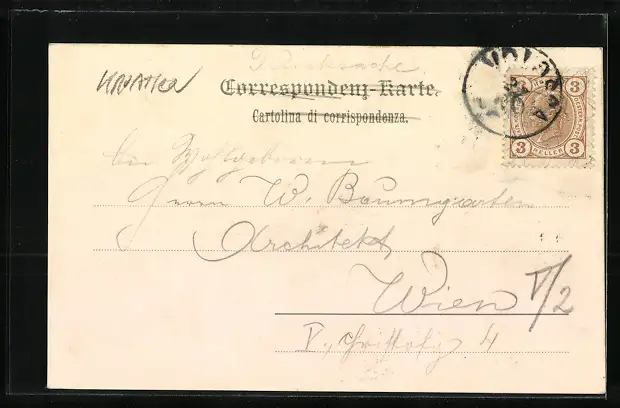 Drucksache
KROATIEN
Correspondenz-Karte.
Cartolina di corrispondenza.
VOLOSCA
3 3
3 HELLER 3
Herrn W. Baumgarten
Architekt
Wien V/2
V., 4